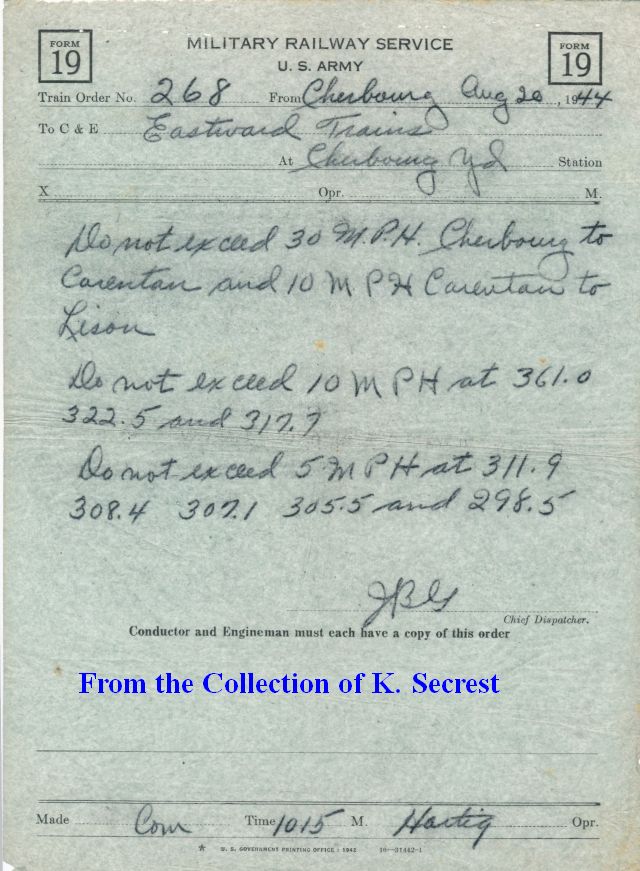 FORM 19
MILITARY RAILWAY SERVICE
U. S. ARMY
FORM 19
Train Order No. 268 From Cherbourg Aug 20, 1944
To C & E Eastward Trains
At Cherbourg Yd Station
X Opr. M.
Do not exceed 30 M.P.H. Cherbourg to
Carentan and 10 M P H Carentan to
Lison
Do not exceed 10 M P H at 361.0
322.5 and 317.7
Do not exceed 5 M P H at 311.9
308.4 307.1 305.5 and 298.5
JBG
Chief Dispatcher.
Conductor and Engineman must each have a copy of this order
From the Collection of K. Secrest
Made Com Time 1015 M. Hartig Opr.
* U. S. GOVERNMENT PRINTING OFFICE : 1942 16—31442-1